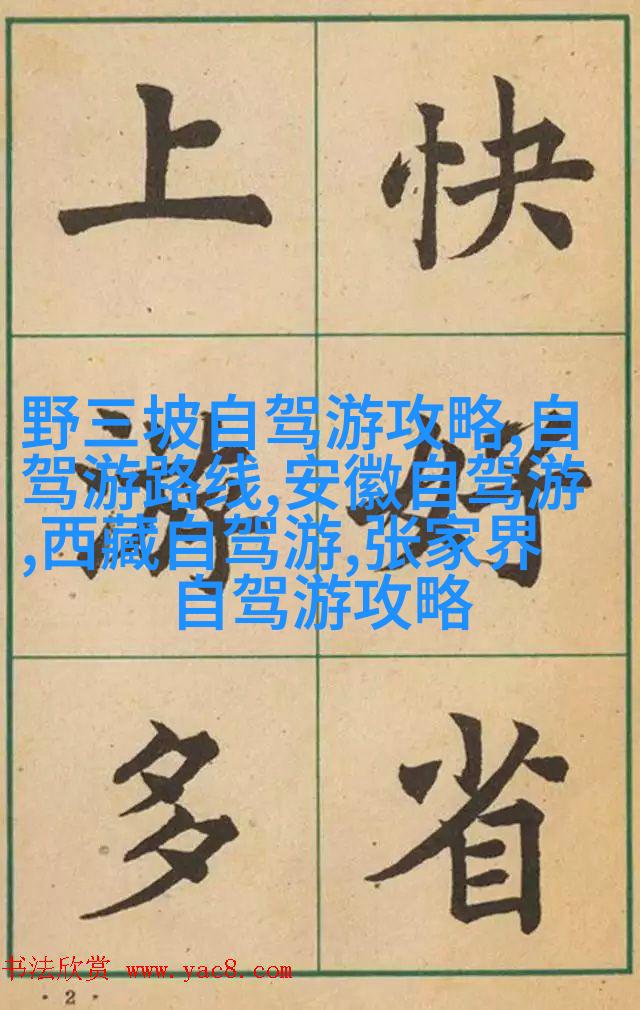 上游多
快好省
野三坡自驾游攻略,自
驾游路线,安徽自驾游
,西藏自驾游,张家界
自驾游攻略
书法欣赏 www.yac8.com
· 2 ·